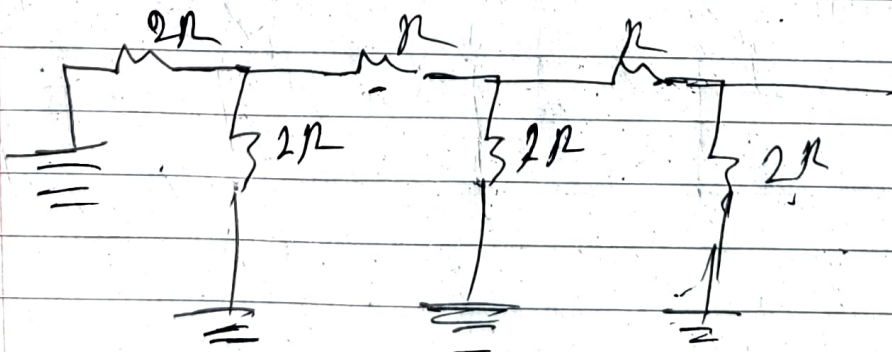 2R R R
2R 2R 2R